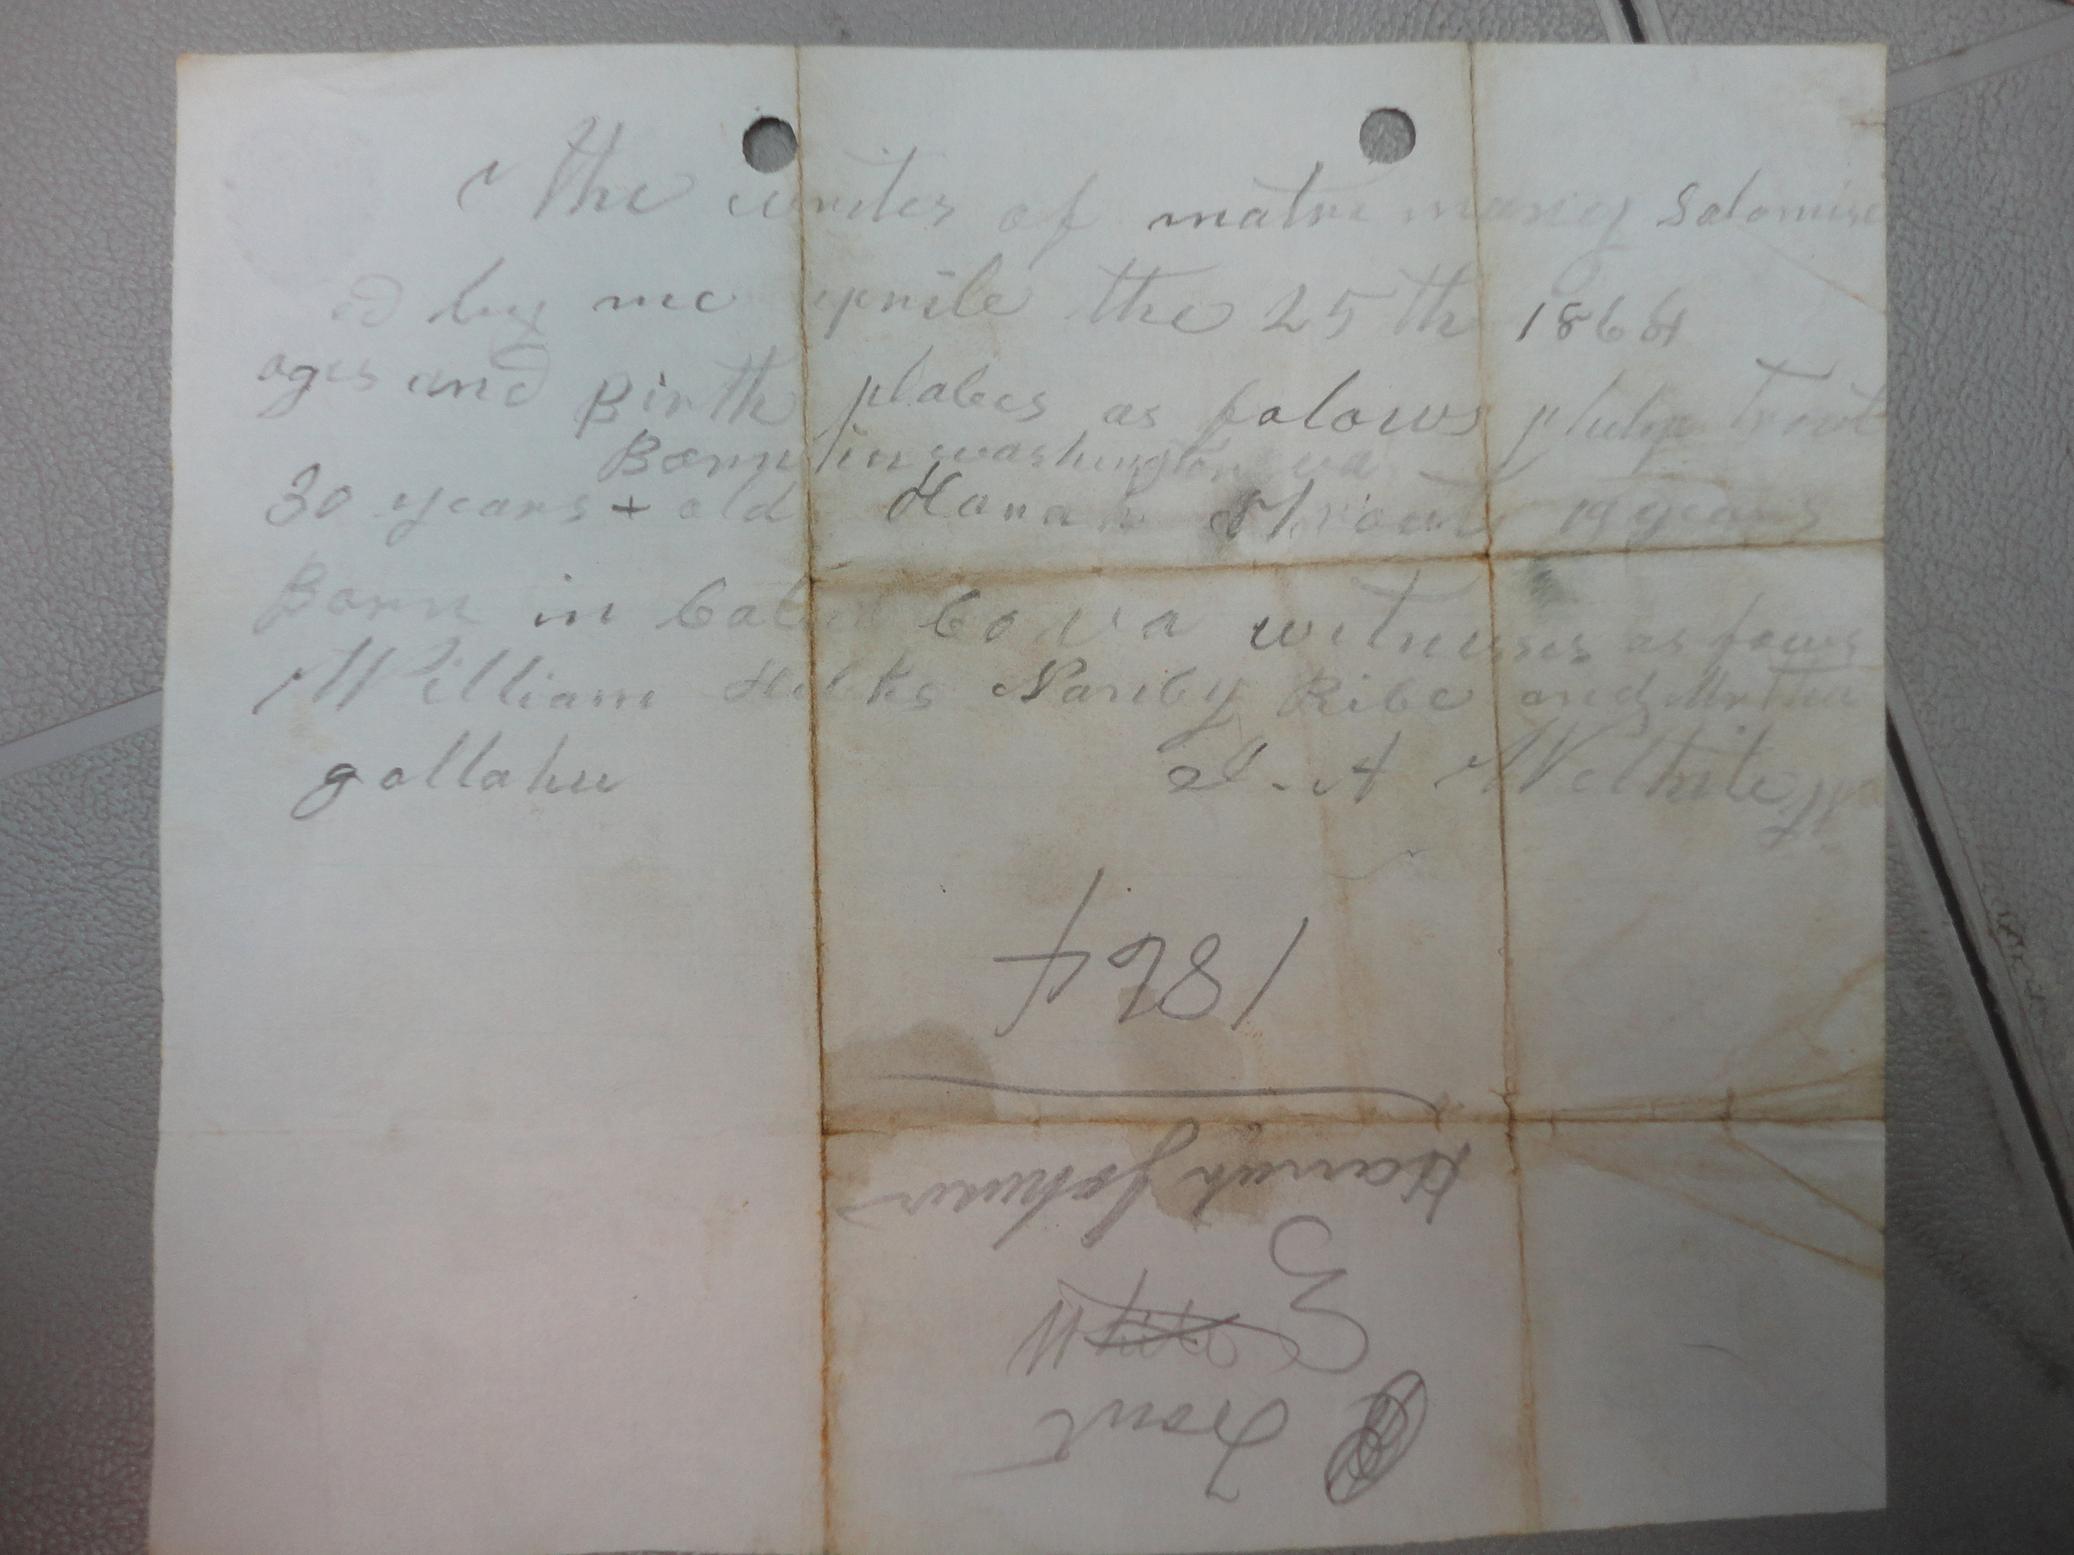 the writes of matrimoniy Solomise
ed by me aprile the 25th 1864
ages and Birth plabes as folows philip Trout
Born in washington va
30 years + old Hanah Trout 19 years
Born in Co va witnesses as fows
William Hilks Nanby Ribe and
gallahu A Wilhite
1864
Hannah
&
Trout